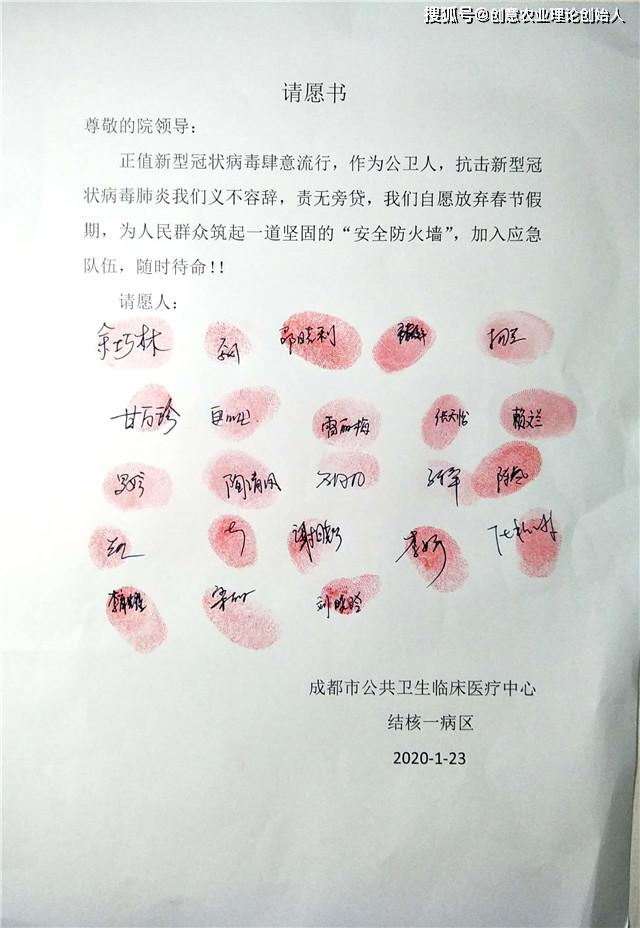 搜狐号@创意农业理论创始人
请愿书
尊敬的院领导：
正值新型冠状病毒肆意流行，作为公卫人，抗击新型冠
状病毒肺炎我们义不容辞，责无旁贷，我们自愿放弃春节假
期，为人民群众筑起一道坚固的“安全防火墙”，加入应急
队伍，随时待命!!
请愿人：
余巧林 邵晓利
甘万珍 雷丽梅 赖文兰
陶清凤
成都市公共卫生临床医疗中心
结核一病区
2020-1-23